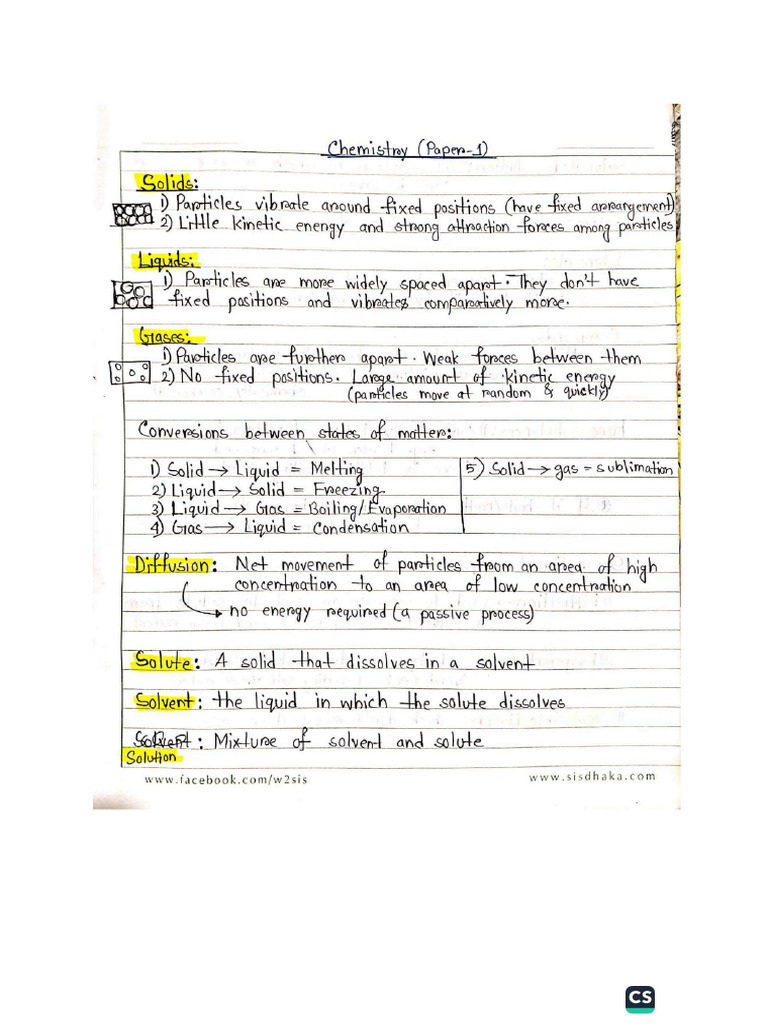 Chemistry (Paper-1)
Solids:
1) Particles vibrate around fixed positions (have fixed arrangement)
2) Little kinetic energy and strong attraction forces among particles
Liquids:
1) Particles are more widely spaced apart. They don't have
fixed positions and vibrates comparatively more.
Gases:
1) Particles are further apart. Weak forces between them
2) No fixed positions. Large amount of kinetic energy
(particles move at random & quickly)
Conversions between states of matter:
1) Solid → Liquid = Melting
2) Liquid → Solid = Freezing
3) Liquid → Gas = Boiling/Evaporation
4) Gas → Liquid = Condensation
5) Solid → gas = sublimation
Diffusion: Net movement of particles from an area of high
concentration to an area of low concentration
→ no energy required (a passive process)
Solute: A solid that dissolves in a solvent
Solvent: the liquid in which the solute dissolves
Solvent: Mixture of solvent and solute
Solution
www.facebook.com/w2sis
www.sisdhaka.com
CS